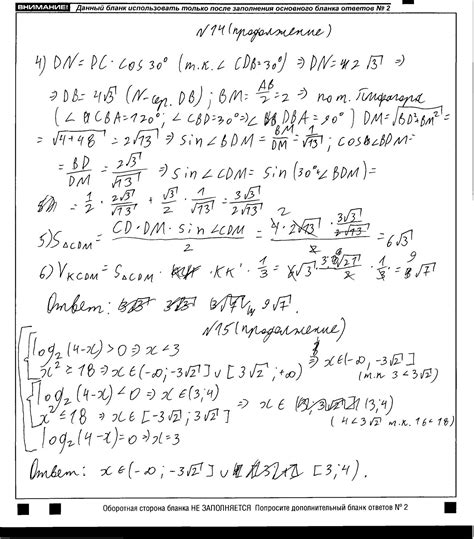 ВНИМАНИЕ! Данный бланк использовать только после заполнения основного бланка ответов № 2
N14 (продолжение)
4) DN = DC · cos 30° (т.к. ∠CDB = 30°) ⇒ DN = 2√3 ⇒
⇒ DB = 4√3 (N-сер. DB); BM = AB/2 = 2 ⇒ по т. Пифагора
(∠CBA = 120°, ∠CBD = 30° ⇒ ∠DBA = 90°) DM = √BD²+BM² =
= √4+48 = 2√13 ⇒ sin∠BDM = BM/DM = 1/√13; cos∠BDM =
= BD/DM = 2√3/√13 ⇒ sin∠CDM = sin(30°+∠BDM) =
= 1/2 · 2√3/√13 + √3/2 · 1/√13 = 3√3/2√13
5) S△CDM = CD · DM · sin∠CDM / 2 = 4 · 2√13 · 3√3/2√13 / 2 = 6√3
6) VKCDM = S△CDM · KK' · 1/3 = 6√3 · √21 · 1/3 = 9√7
Ответ: 9√7
N15 (продолжение)
log₂(4-x) > 0 ⇒ x < 3
x² ≥ 18 ⇒ x ∈ (-∞, -3√2] ∪ [3√2; +∞) ⇒ x ∈ (-∞, -3√2]
(т.к 3 < 3√2)
log₂(4-x) < 0 ⇒ x ∈ (3; 4)
x² ≤ 18 ⇒ x ∈ [-3√2; 3√2] ⇒ x ∈ (3; 4)
(4 < 3√2 т.к. 16 < 18)
log₂(4-x) = 0 ⇒ x = 3
Ответ: x ∈ (-∞, -3√2] ∪ [3; 4).
Оборотная сторона бланка НЕ ЗАПОЛНЯЕТСЯ Попросите дополнительный бланк ответов № 2